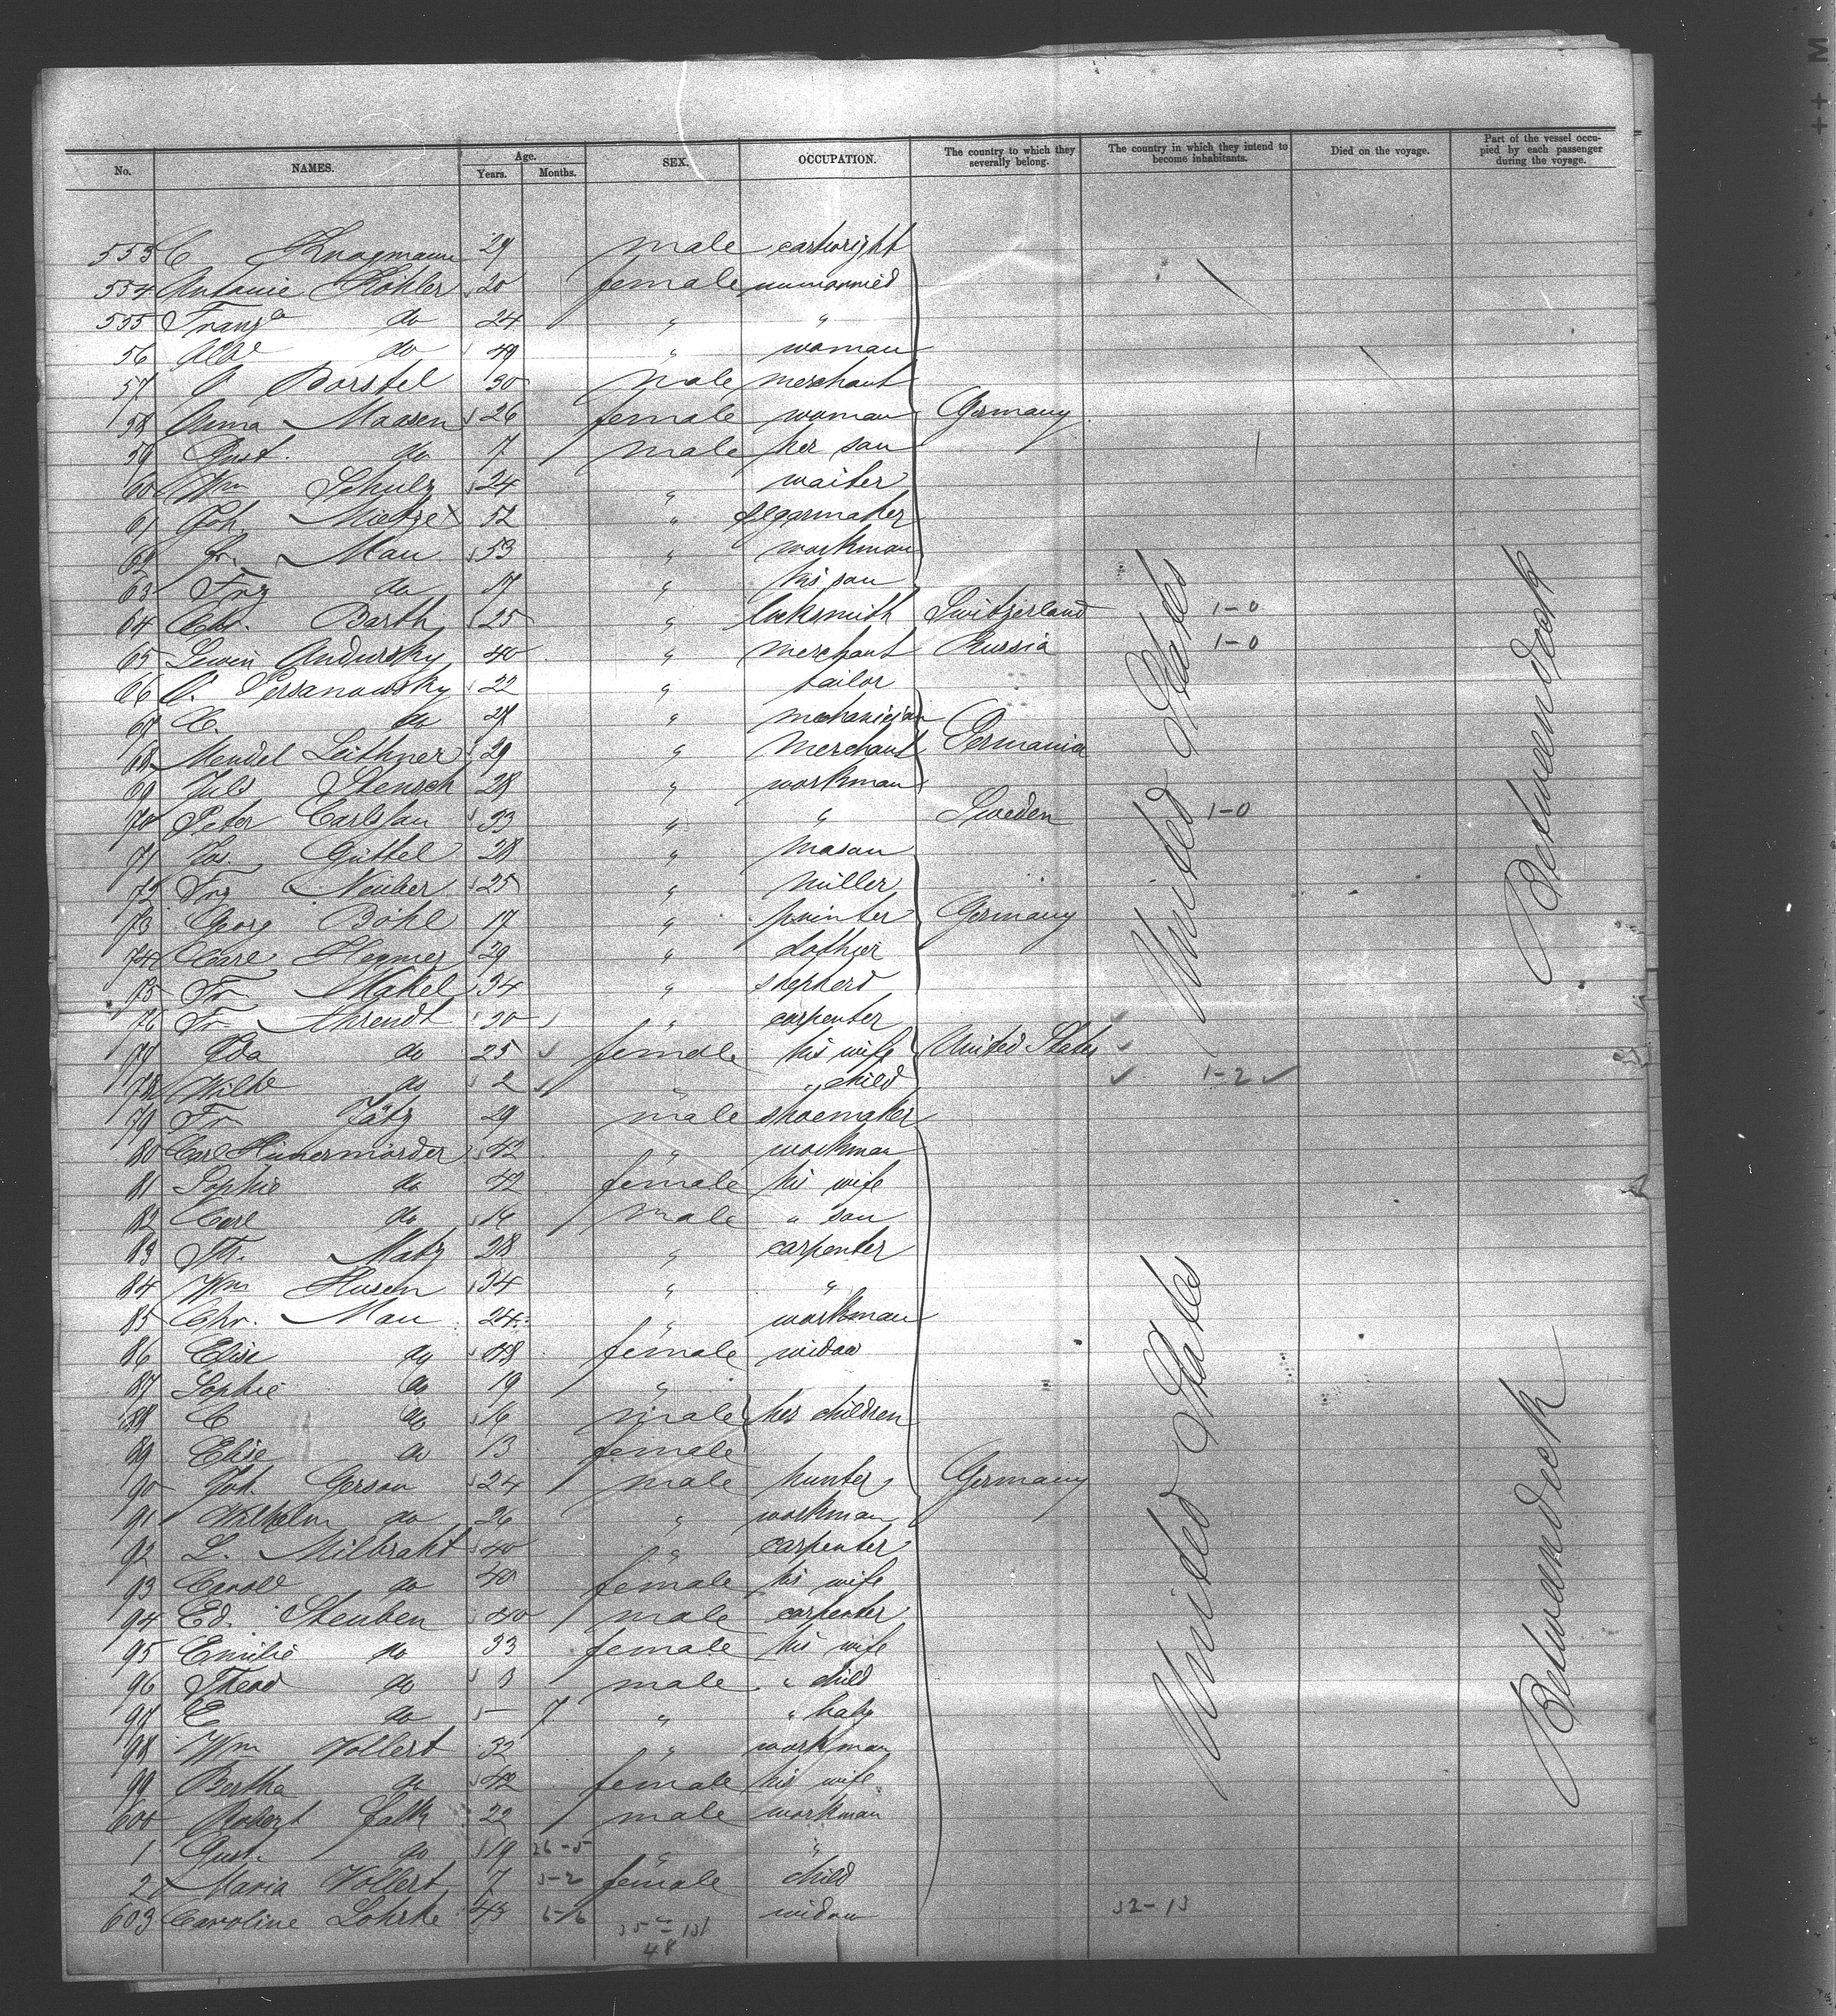 No. NAMES. Age. Years. Months. SEX. OCCUPATION. The country to which they severally belong. The country in which they intend to become inhabitants. Died on the voyage. Part of the vessel occupied by each passenger during the voyage.
553 C Knagmann 29 male cartwright
554 Antonie Köhler 20 female unmarried
555 Franz^a do 24 " "
56 do 49 " woman
57 Borstel 30 male merchant
58 Anna Maasen 26 female woman Germany
59 Gust. do 7 male her son
60 Wm Schulz 24 " waiter
61 Joh. Mietze 52 "
62 Fr. Mau 53 " workman
63 Frz do 17 " his son
64 Chr. Barth 25 " locksmith Switzerland 1-0
65 Lewin Andursky 40 " merchant Russia 1-0
66 Persanowsky 22 " tailor
67 do 27 " mechanician
68 Mendel Leithner 29 " merchant Germania
69 Juls Stensch 28 " workman
70 Peter Carlsson 33 " " Sweden 1-0
71 Jos. Güttel 28 " mason
72 Frz Neuber 25 " miller
73 Georg Böhl 17 " painter Germany
74 Carl Heymer 29 " clothier
75 Fr. Makel 34 " shepherd
76 Fr Ahrendt 30 " carpenter
77 Ida do 25 female his wife United States
78 Wilh^e do 2 " " child 1-2
79 Fr Jätz 29 male shoemaker
80 Carl Hünermörder 42 " workman
81 Sophie do 42 female his wife
82 Carl do 16 male " son
83 Fr. Matz 28 " carpenter
84 Wm Husen 34 " "
85 Chr. Mau 24 " workman
86 Elise do 48 female widow
87 Sophie do 19 "
88 C do 16 male her children
89 Elise do 13 female
90 Joh. Gerson 24 male hunter Germany
91 Wilhelm do 26 " workman
92 L. Milbraht 40 " carpenter
93 Carol^e do 40 female his wife
94 Ed. Steuben 40 male carpenter
95 Emilie do 33 female his wife
96 Theod do 3 male " child
97 E do - 7 " " baby
98 Wm Vollert 32 " workman
99 Bertha do 42 female his wife
600 Robert Falk 22 male workman
1 Gust. do 19 26-5 " "
2 Maria Vollert 7 5-2 female child
603 Caroline Lohrke 43 6-6 " widow 32-13
48
United States
United States
Betweendeck
Betweendeck